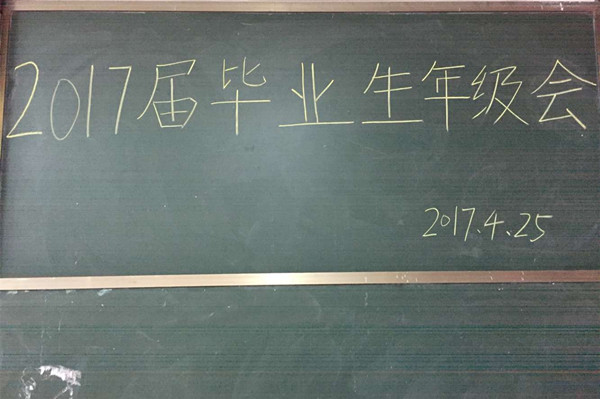 2017届毕业生年级会
2017.4.25